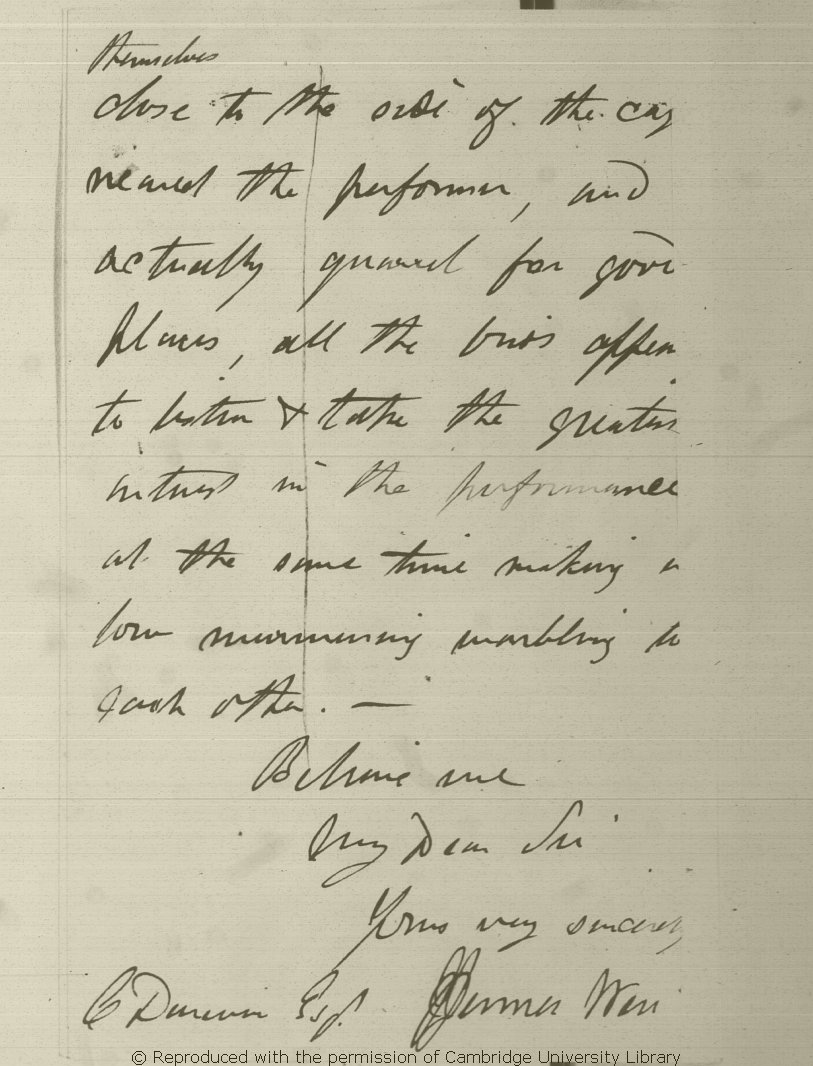 themselves
close to the side of the cag
nearest the performer, and
actually quarrel for good
places, all the birds appear
to listen & take the greatest
interest in the performance
at the same time making a
low murmuring warbling to
each other. —
Believe me
My Dear Sir
Yours very sincerely
C Darwin Esq.
J Jenner Weir
© Reproduced with the permission of Cambridge University Library